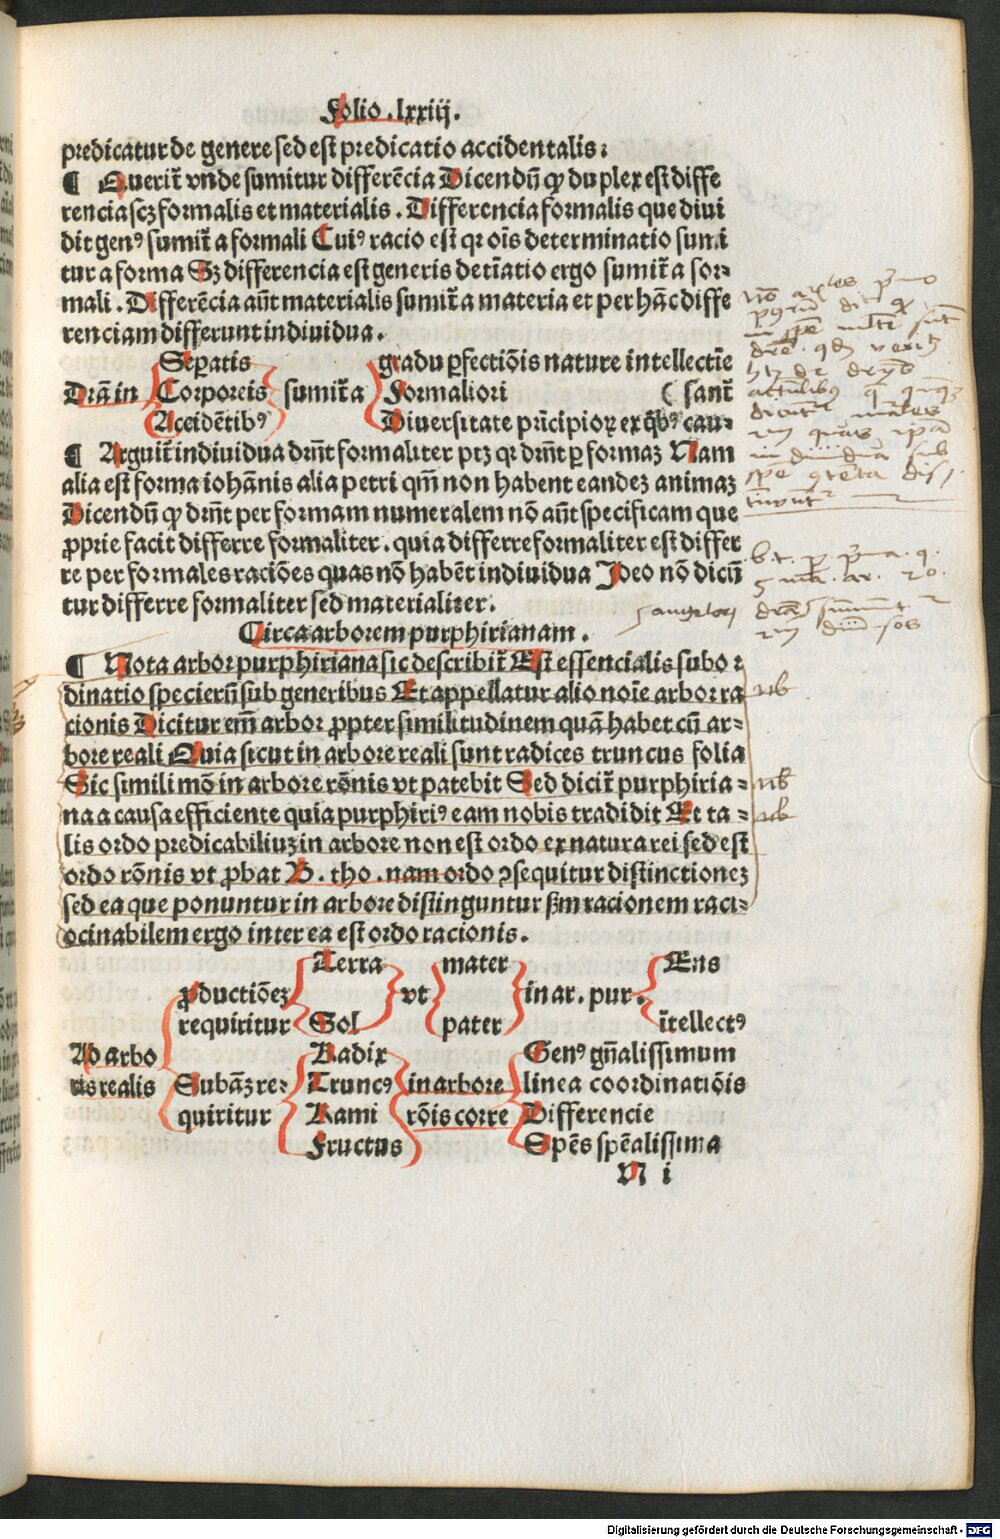 Folio .lxxiij.
predicatur de genere sed est predicatio accidentalis:
¶ Querit᷑ vnde sumitur differẽcia Dicendũ ꝙ duplex est diffe
rencia scꝫ formalis et materialis . Differencia formalis que diui
dit genꝰ sumit᷑ a formali Cuiꝰ racio est qꝛ oĩs determinatio sumi
tur a forma Sꝫ differencia est generis det̃iatio ergo sumit᷑ a for⸗
mali . Differẽcia aũt materialis sumit᷑ a materia et per hãc diffe
renciam differunt indiuidua .
Sep̱atis gradu ꝑfectiõis nature intellectiẽ
Drãin Corporeis sumit᷑ a Formaliori ( sant᷑
Accidẽtibꝰ Diuersitate prĩcipioꝝ ex qͥbꝰ cau⸗
¶ Arguit᷑ indiuidua drñt formaliter ptꝫ qꝛ drñt ꝑ formaꝫ Nam
alia est forma iohãnis alia petri qm̃ non habent eandeꝫ animaꝫ
Dicendũ ꝙ drñt per formam numeralem nõ aũt specificam que
ꝓprie facit differre formaliter . quia differre formaliter est differ
re per formales raciões quas nõ habẽt indiuidua Ideo nõ dicũ
tur differre formaliter sed materialiter.
Circa arborem purphirianam .
¶ Nota arbor purphiriana sic describit᷑ Est essencialis subor⸗
dinatio specierũ sub generibus Et appellatur alio noĩe arbor ra
cionis Dicitur em̃ arbor ꝓpter similitudinem quã habet cũ ar⸗
bore reali Quia sicut in arbore reali sunt radices truncus folia
Sic simili mõ in arbore rõnis vt patebit Sed dicit᷑ purphiria ⸗
na a causa efficiente quia purphiriꝰ eam nobis tradidit Et ta ⸗
lis ordo predicabiliuꝫ in arbore non est ordo ex natura rei sed est
ordo rõnis vt ꝓbat B . tho . nam ordo ꝯsequitur distinctioneꝫ
sed ea que ponuntur in arbore distinguntur ẜm racionem raci⸗
ocinabilem ergo inter ea est ordo racionis .
Terra mater Ens
ꝓductiõeꝫ vt in ar . pur .
requiritur Sol pater ĩtellectꝰ
Ad arbo Radix Genꝰ gñalissimum
ris realis Subãꝫ re⸗ Truncꝰ in arbore linea coordinatiõis
quiritur Rami rõis corre Differencie
Fructus Spẽs spẽalissima
N i
nb
nb
nb
Digitalisierung gefördert durch die Deutsche Forschungsgemeinschaft - DFG